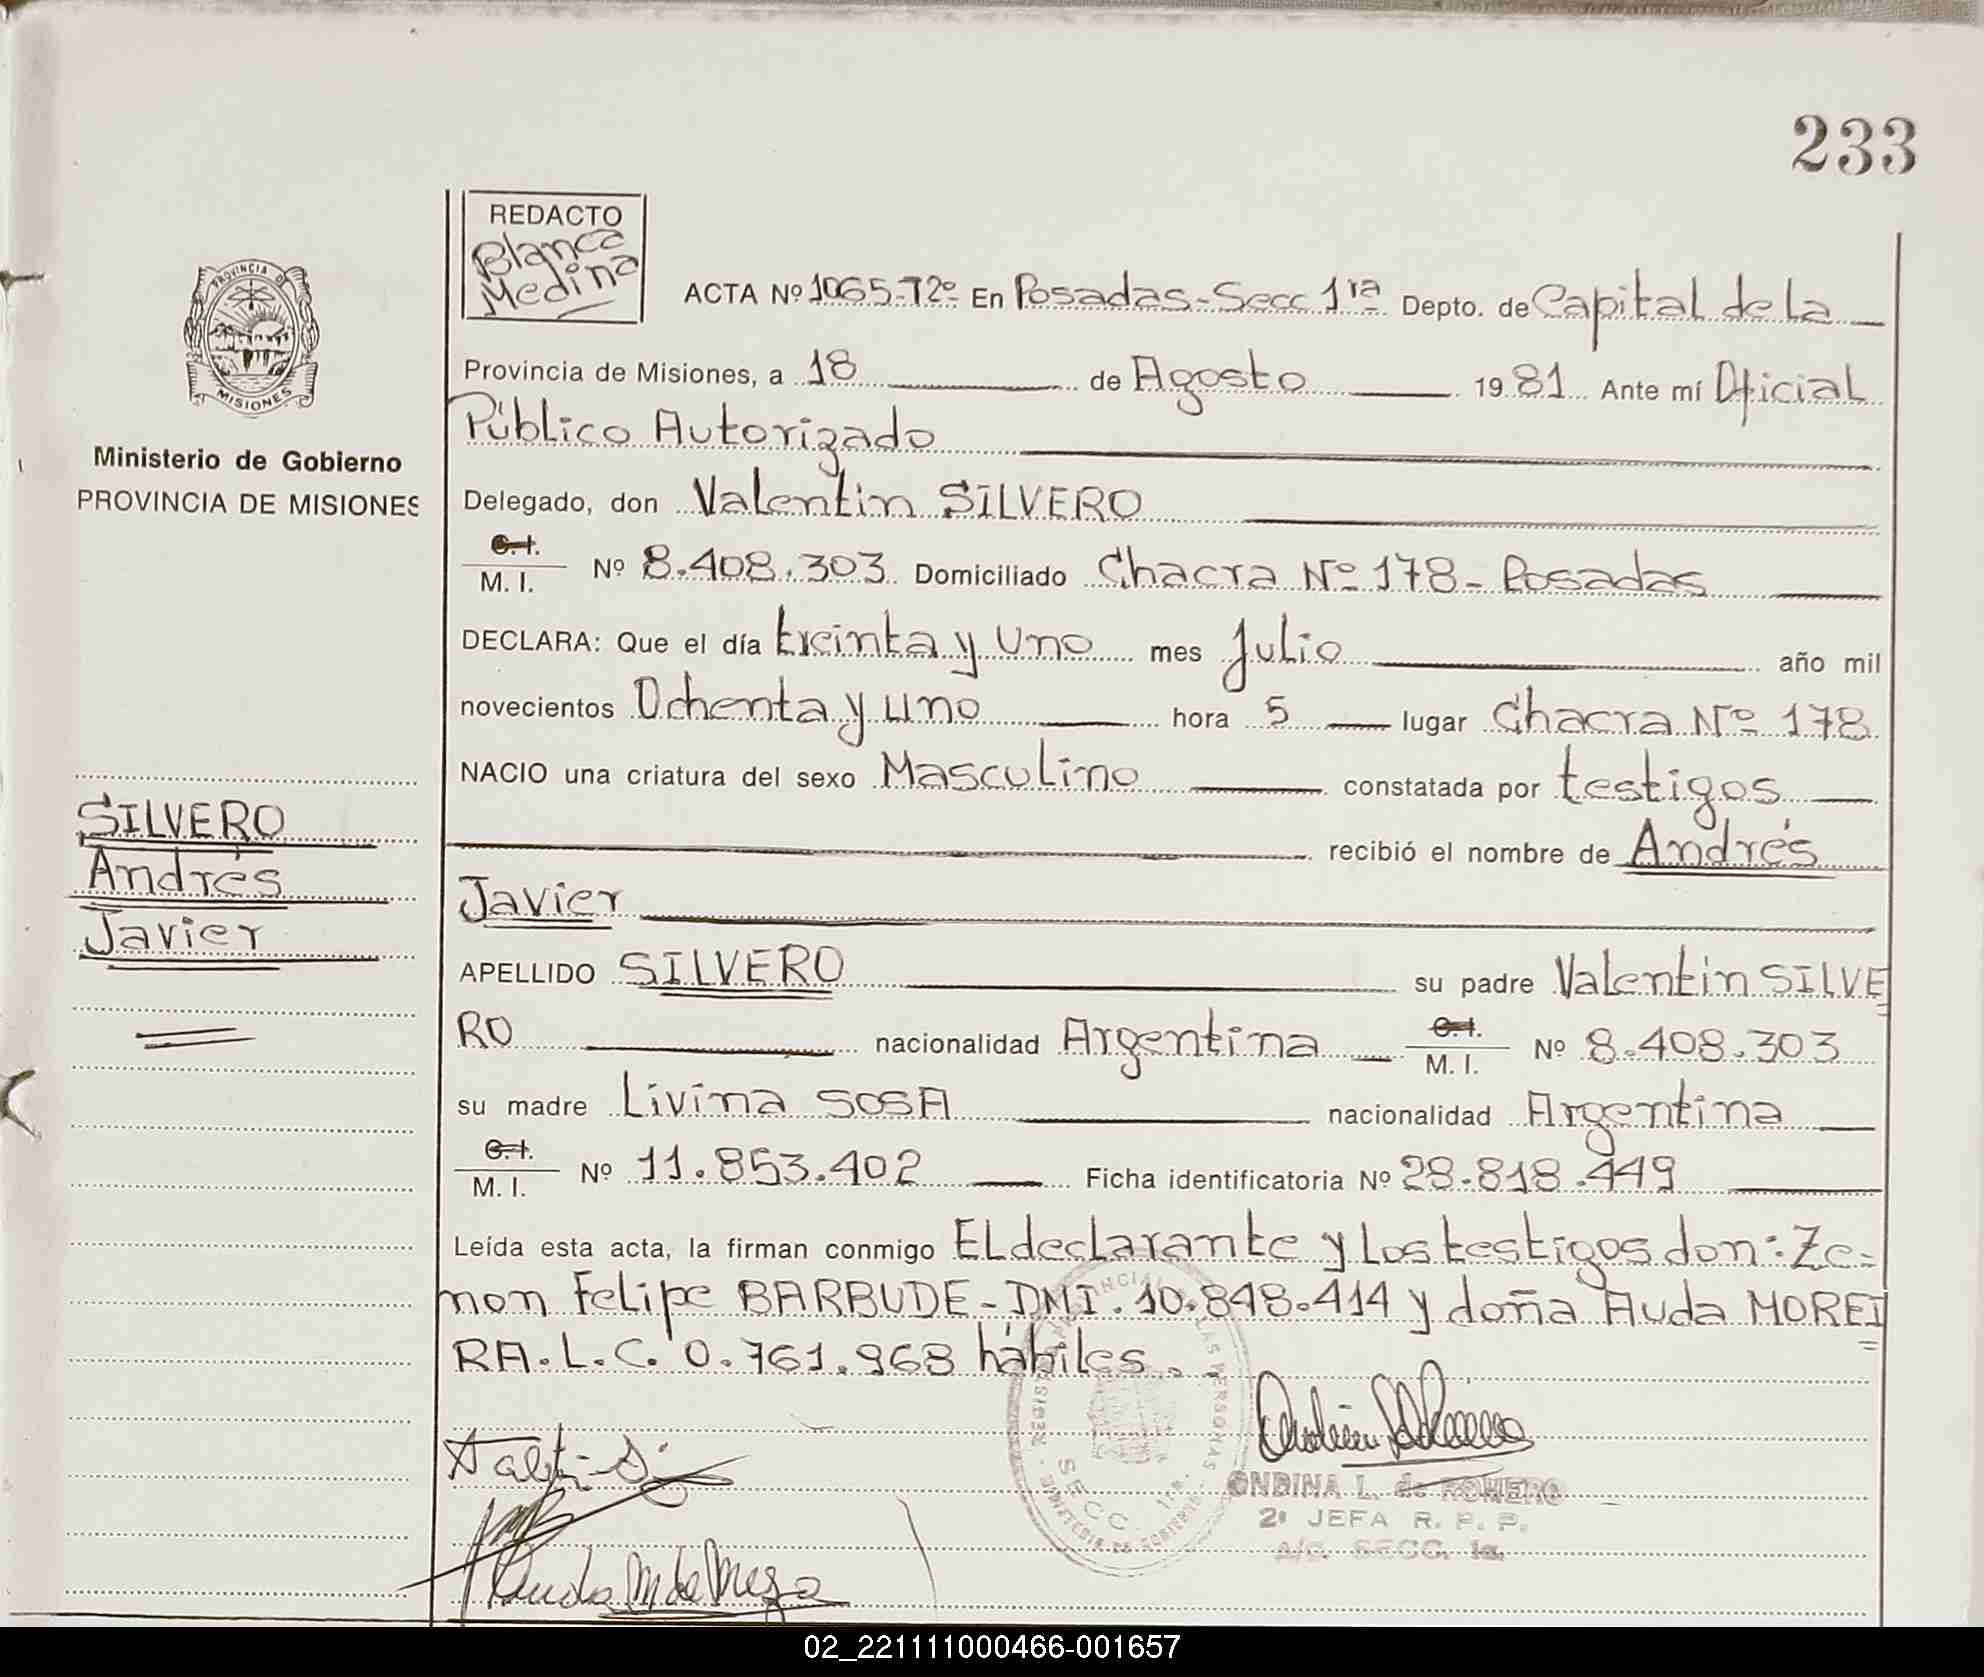 233
REDACTO
Blanca
Medina
ACTA Nº 1065-Tº2º En Posadas-Secc 1ra Depto. de Capital de la
PROVINCIA DE
MISIONES
Provincia de Misiones, a 18 de Agosto 1981 Ante mí Oficial
Público Autorizado
Ministerio de Gobierno
PROVINCIA DE MISIONES
Delegado, don Valentin SILVERO
C.I.
M. I. Nº 8.408.303 Domiciliado Chacra Nº 178- Posadas
DECLARA: Que el día treinta y uno mes Julio año mil
novecientos Ochenta y uno hora 5 lugar Chacra Nº 178
NACIO una criatura del sexo Masculino constatada por testigos
recibió el nombre de Andrés
Javier
SILVERO
Andrés
Javier
APELLIDO SILVERO su padre Valentin SILVE
RO nacionalidad Argentina C.I. M. I. Nº 8.408.303
su madre Livina SOSA nacionalidad Argentina
C.I.
M. I. Nº 11.853.402 Ficha identificatoria Nº 28.818.449
Leída esta acta, la firman conmigo El declarante y los testigos don: Ze-
non Felipe BARBUDE- DMI. 10.848.414 y doña Auda MOREI
RA. L. C. 0.761.968 hábiles.
SECC. 1ra.
ONDINA L. de ROMERO
2ª JEFA R. P. P.
A/C. SECC. 1a.
Auda M de Meza
02_221111000466-001657